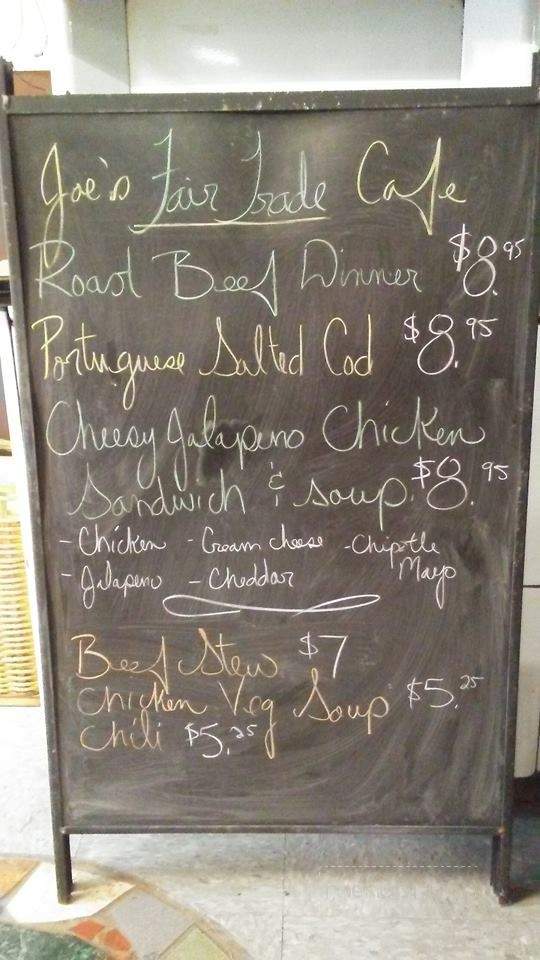 Joe's Fair Trade Cafe
Roast Beef Dinner $8.95
Portuguese Salted Cod $8.95
Cheesy Jalapeno Chicken
Sandwich & soup. $8.95
- Chicken - Cream cheese - Chipotle
- Jalapeno - Cheddar Mayo
Beef Stew $7
Chicken Veg Soup $5.25
Chili $5.25